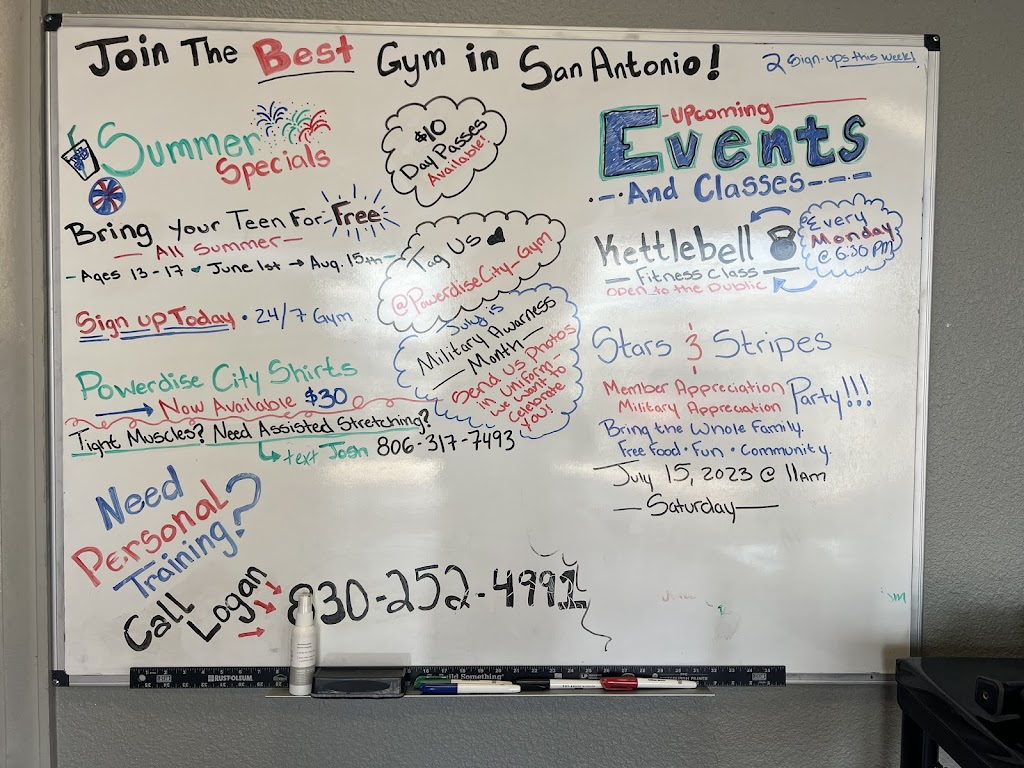 Join The Best Gym in San Antonio!
2 Sign-ups this week!
Summer
Specials
Bring Your Teen For Free
— All Summer —
- Ages 13-17 June 1st → Aug. 15th -
Sign up Today • 24/7 Gym
Powerdise City Shirts
Now Available $30
Tight Muscles? Need Assisted Stretching?
text Josh 806-317-7493
Need
Personal
Training?
Call
Logan
830-252-4991
$10
Day Passes
Available!
Tag Us
@PowerdiseCity_Gym
July is
Military Awarness
— Month —
Send us photos
in uniform -
we want to
celebrate
you!
Upcoming
Events
And Classes
Kettlebell
Fitness Class
open to the public
Every
Monday
@ 6:30 PM
Stars & Stripes
Member Appreciation
Military Appreciation
Party!!!
Bring the Whole Family.
Free Food • Fun • Community.
July 15, 2023 @ 11am
— Saturday —
RUST-OLEUM
Build Something